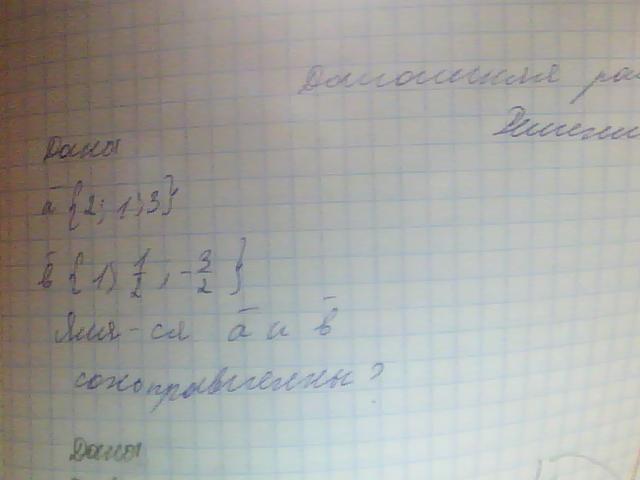 Домашняя
Решени
Даны
ā {2; 1; 3}
b̄ {1; 1/2; -3/2}
Явл-ся ā и b̄
сонаправлены?
Даны